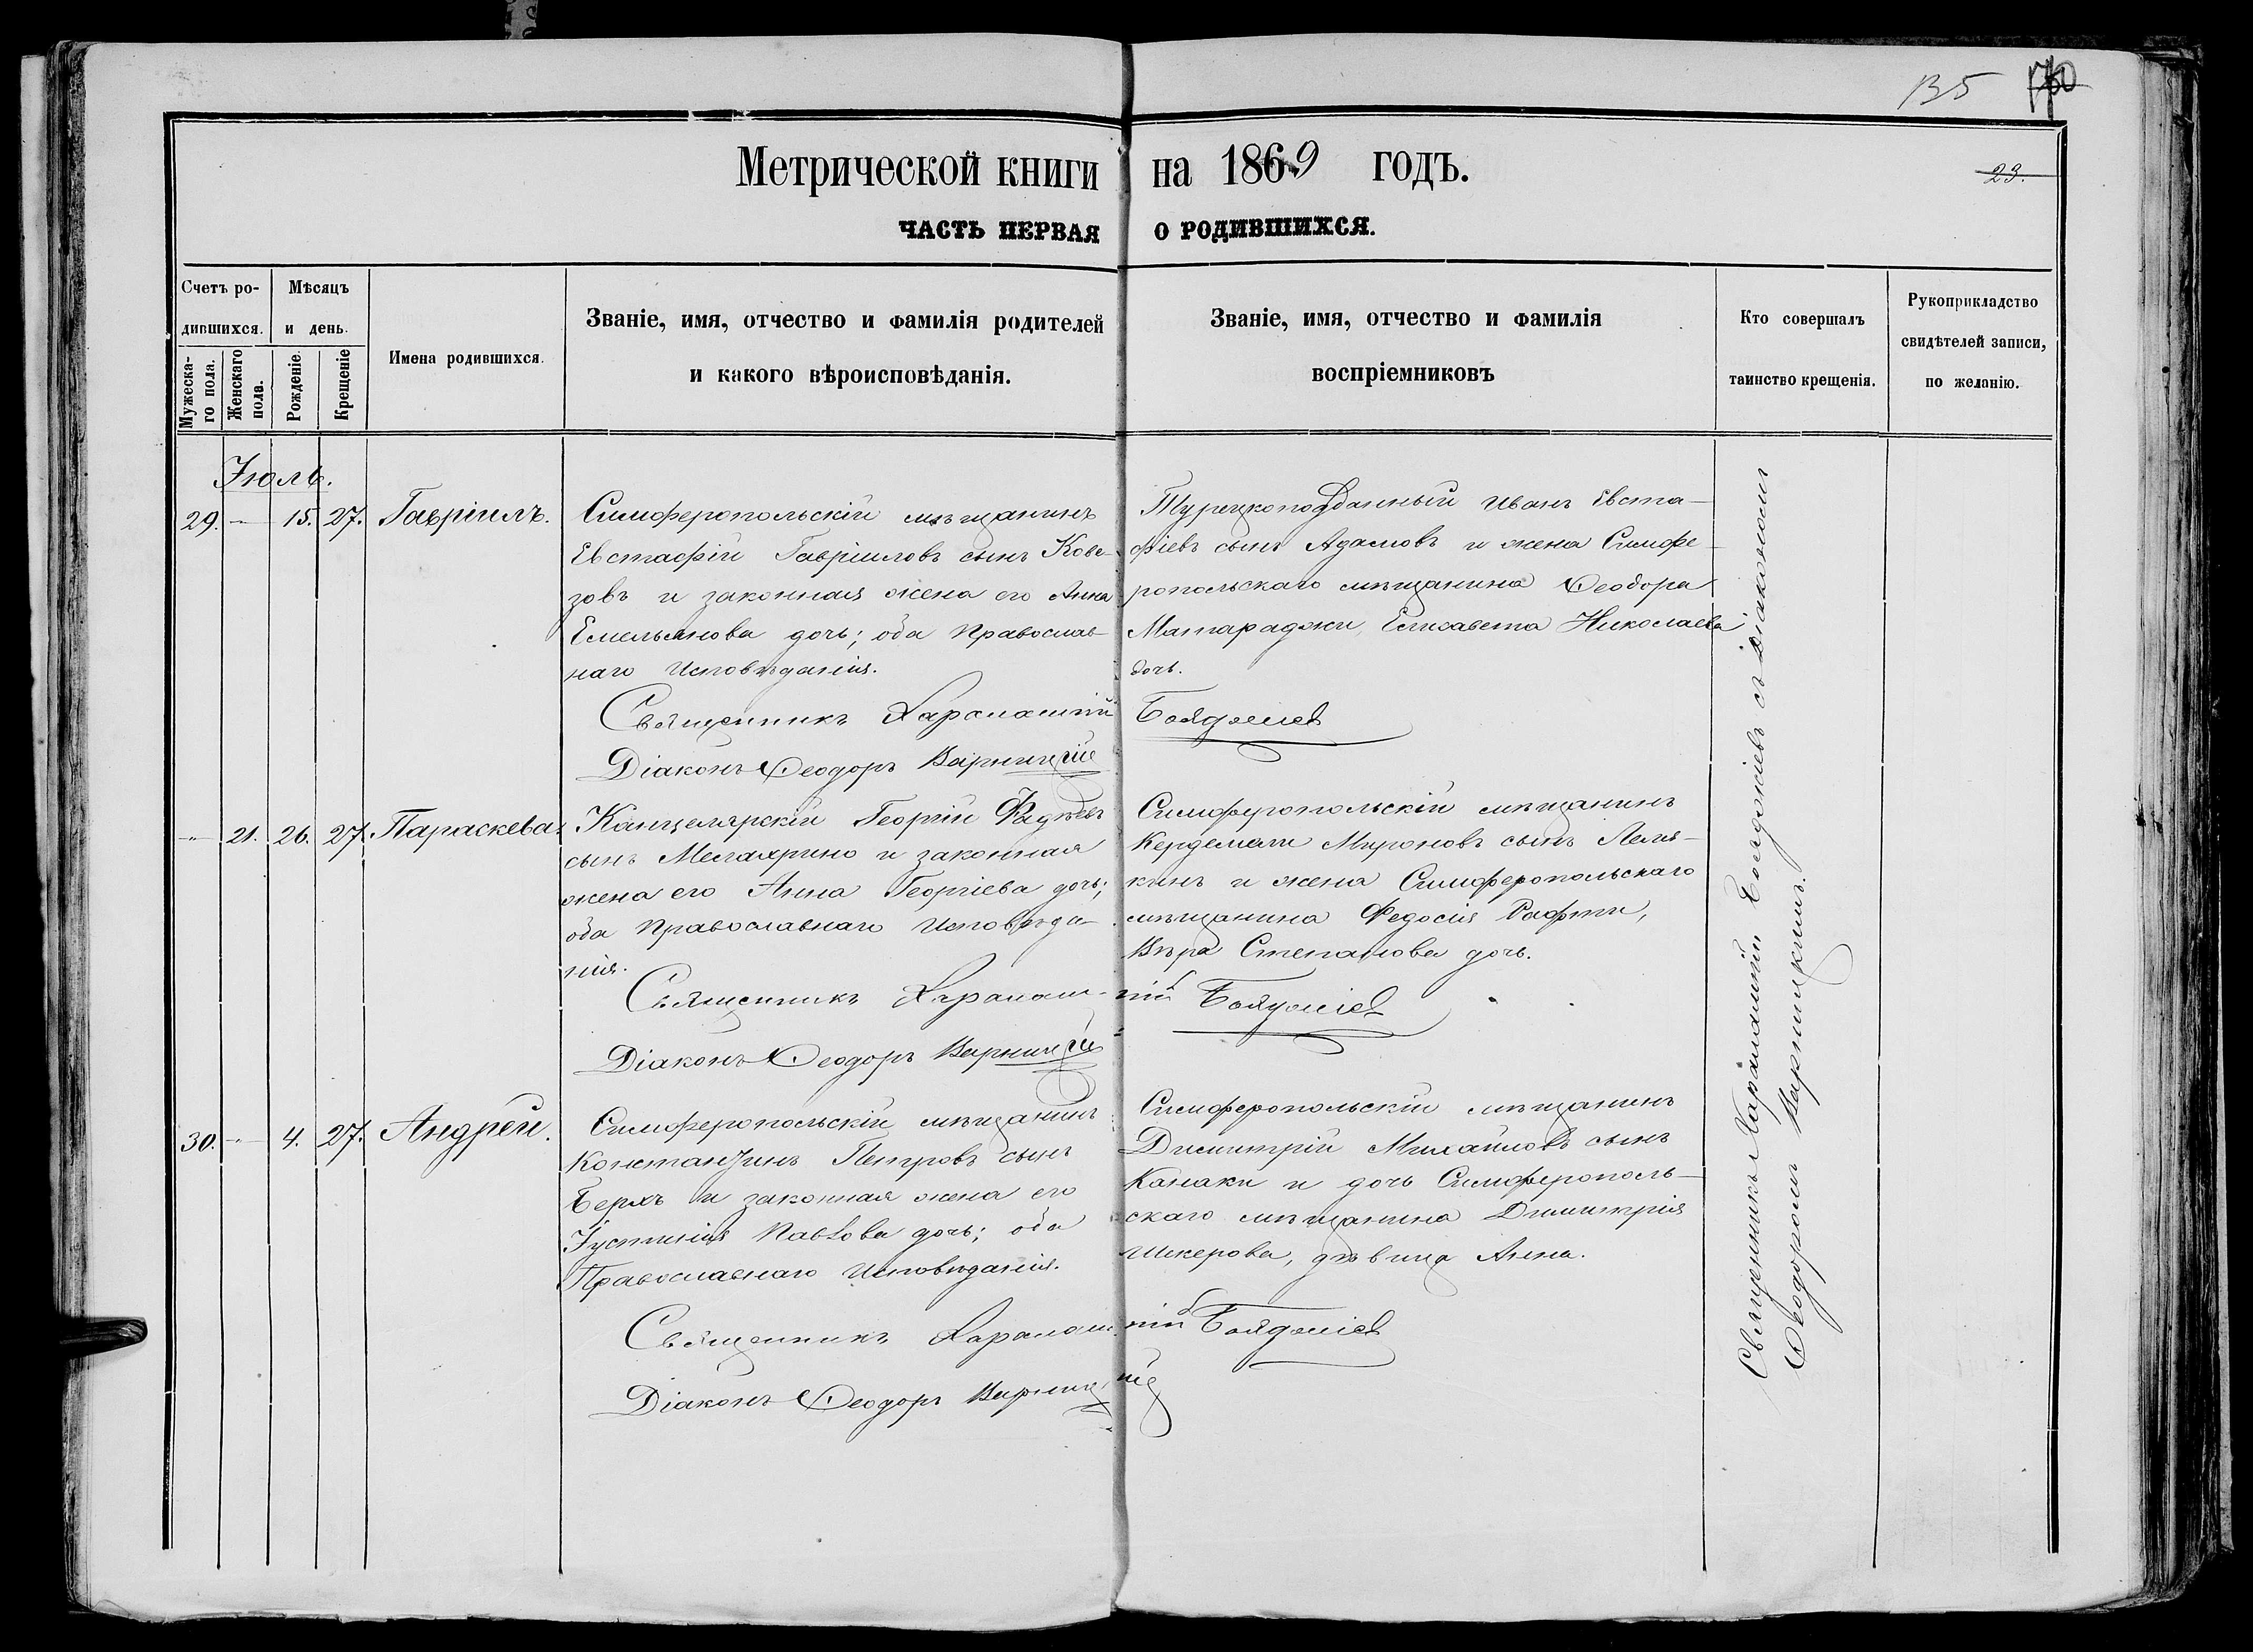 135
Метрической книги на 1869 годъ.
23.
ЧАСТЬ ПЕРВАЯ О РОДИВШИХСЯ.
Счетъ ро-
дившихся.
Мѣсяцъ
и день.
Мужеска-
го пола.
Женскаго
пола.
Рожденіе.
Крещеніе
Имена родившихся.
Званіе, имя, отчество и фамилія родителей
и какого вѣроисповѣданія.
Званіе, имя, отчество и фамилія
воспріемниковъ
Кто совершалъ
таинство крещенія.
Рукоприкладство
свидѣтелей записи,
по желанію.
Іюль.
29. — 15. 27. Гавріилъ.
Симферопольскій мѣщанинъ
Евстафій Гавріиловъ сынъ Кове-
зовъ и законная жена его Анна
Емельянова дочь; оба Православ-
наго Исповѣданія.
Турецкоподданный Иванъ Евста-
фіевъ сынъ Адамовъ и жена Симфе-
ропольскаго мѣщанина Ѳеодора
Матараджи, Елисавета Николаева
дочь.
Священникъ Харалампій Бояджіев
Діаконъ Ѳеодоръ Варницкій
— 21. 26. 27. Параскева.
Канцелярскій Георгій Фадѣевъ
сынъ и законная
жена его Анна Георгіева дочь;
оба Православнаго Исповѣда-
нія.
Симферопольскій мѣщанинъ
Мироновъ сынъ
и жена Симферопольскаго
мѣщанина Федосія
Вѣра Степанова дочь.
Священникъ Харалампій Бояджіев
Діаконъ Ѳеодоръ Варницкій
30. — 4. 27. Андрей.
Симферопольскій мѣщанинъ
Константинъ Петровъ сынъ
и законная жена его
Іустинія Павлова дочь; оба
Православнаго Исповѣданія.
Симферопольскій мѣщанинъ
Димитрій Михайловъ сынъ
Канаки и дочь Симферополь-
скаго мѣщанина Димитрія
Шкерова, дѣвица Анна.
Священникъ Харалампій Бояджіев
Діаконъ Ѳеодоръ Варницкій
Священникъ Харалампій Бояджіевъ съ Діакономъ
Ѳеодоромъ Варницкимъ.